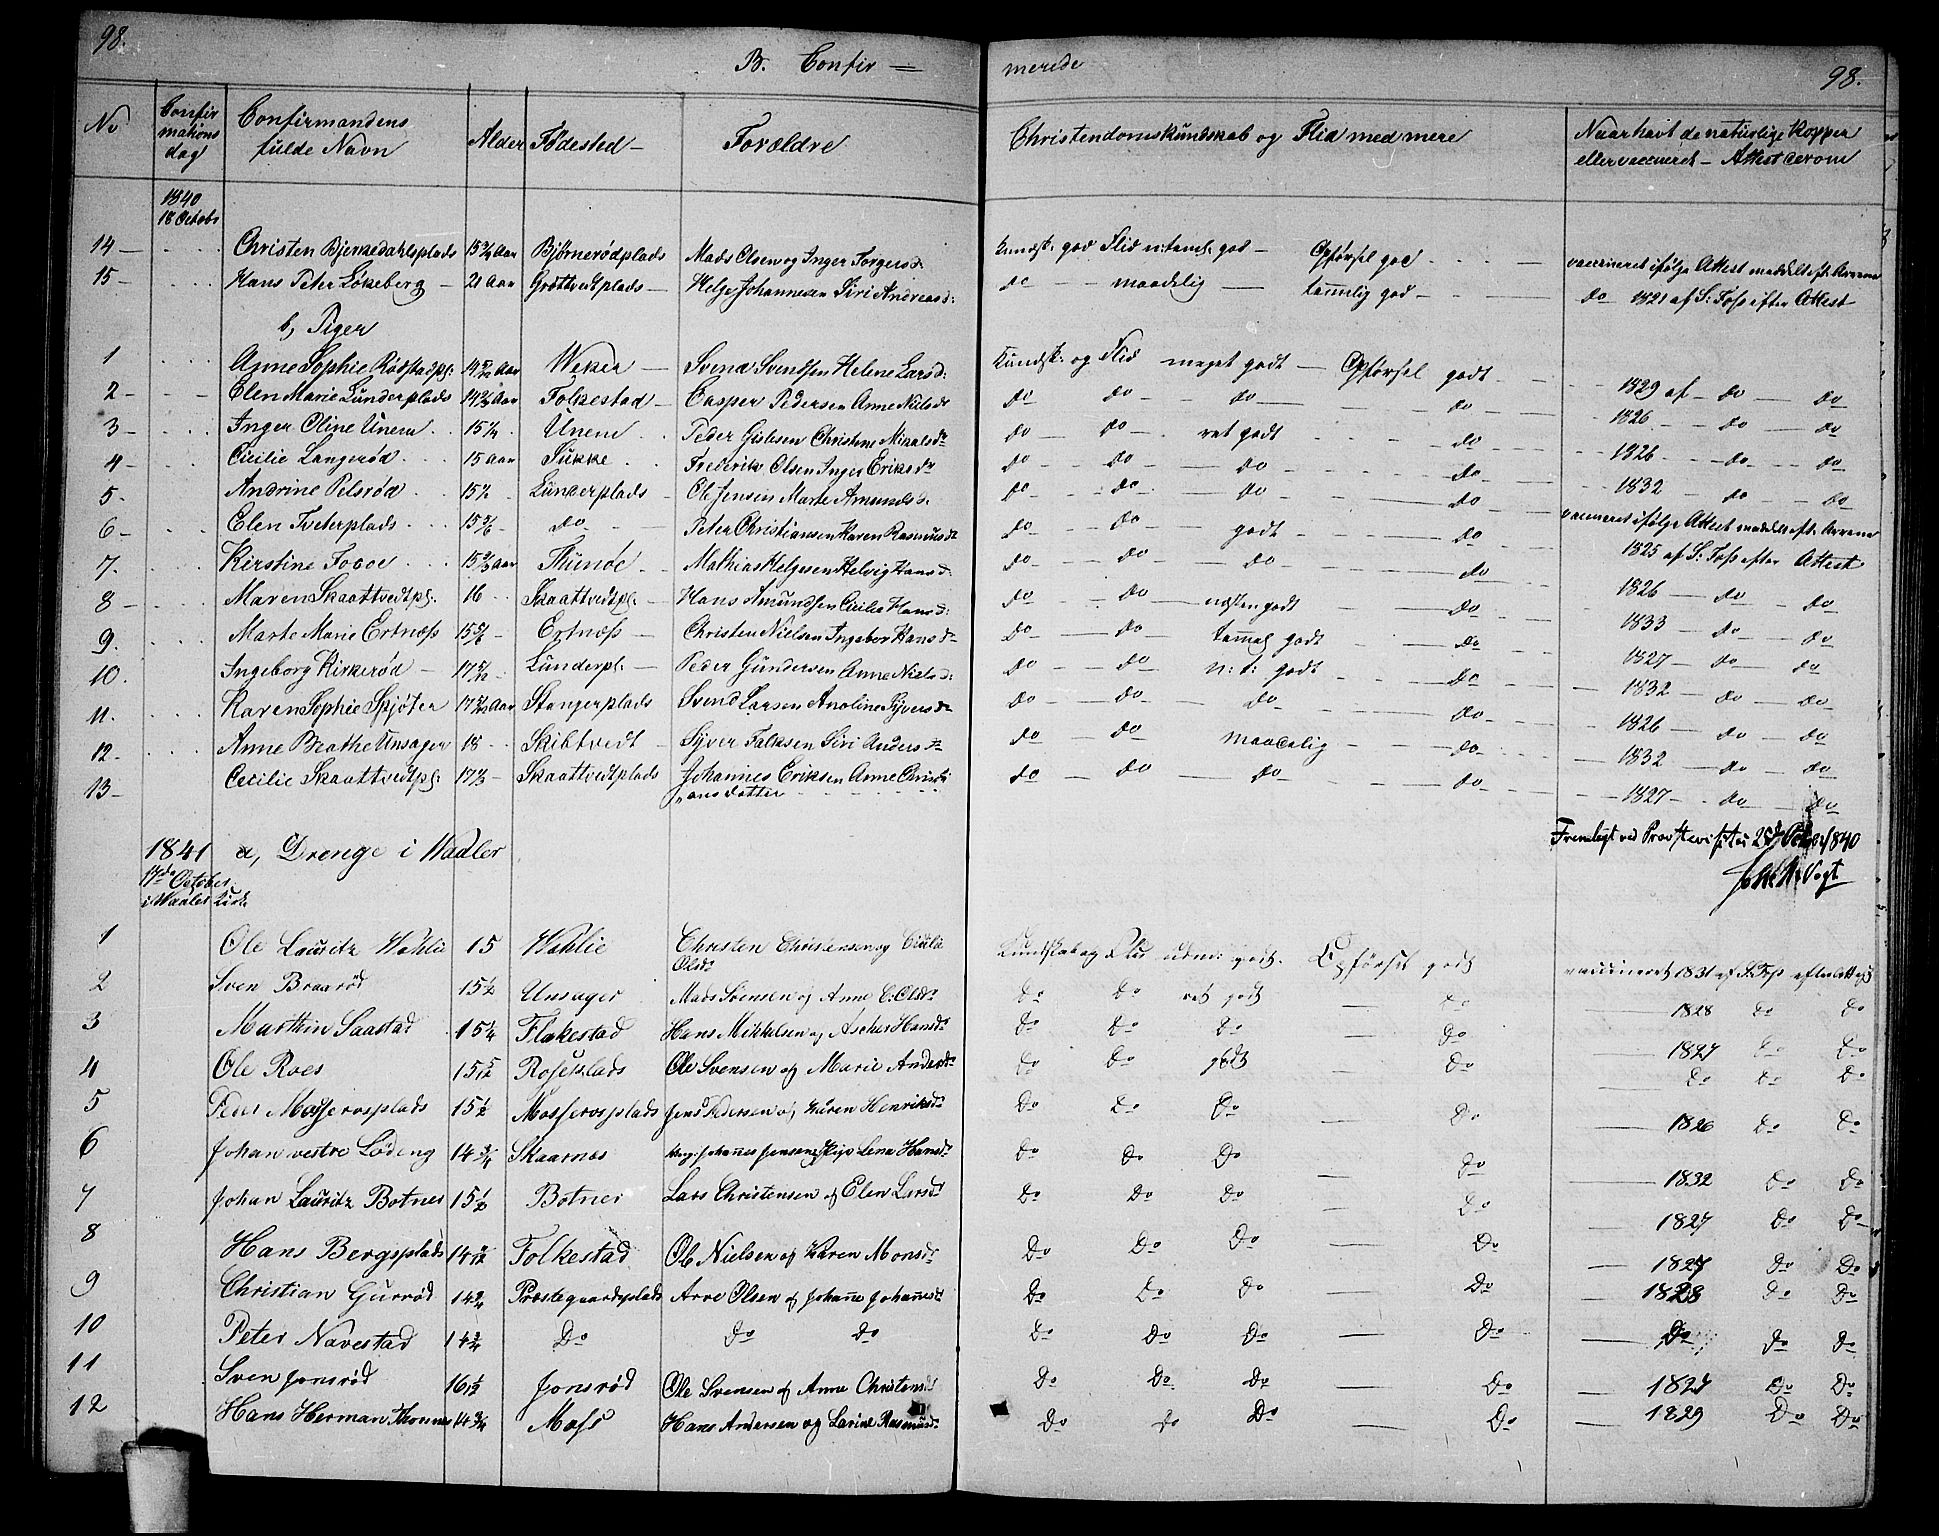 98.
B. Confir = merede
98.
No | Confirmations dag | Confirmandens fulde Navn | Alder | Fødested | Forældre | Christendomskundskab og Flid med mere | Naar havt de naturlige Kopper eller vaccineret — Attest derom
1840
18 Octobr
14 — Christen Bjerkedahlsplads 15 3/4 Aar Bjørnerødplads Mads Olsen og Inger Torgersd: Kundsk: god Flid n: taml: god — Opførsel god — vaccineret ifølge Attest meddelt af
15 — Hans Peter Løkeberg — 21 Aar Grøttvedtplads — Helge Johannesen Siri Andreasd: do — maadelig — tammelig god — do 1821 af S: Foss efter Attest
b, Piger
1 Anne Sophie Rødstadpl: Aar Weker — Svend Svendsen Helene Larsd: Kundsk: og Flid meget godt — Opførsel godt — 1829 af — do — do
2 — Elen Marie Lunderplads Aar Folkestad — Casper Pedersen Anne Nilsdr do do — do — do — 1826 — do — do
3 — Inger Oline Unem 15 1/4 Unem Peder Gislesen Christine Mikalsdr do — do — ret godt do — 1826 — do — do
4 — Cicilie Langerød 15 Aar Sukke Frederik Olsen Inger Eriksdr do — do — do — do — 1832 — do — do
5 — Andrine Pelsrød 15 1/2 Lunderplads — Ole Jensen Marte Amundsd: do — do — do — do
6 — Elen Tveterplads do — Peter Christiansen Karen Rasmusdr do — do — godt — do — vaccineret ifølge Attest meddelt af
7. Kirstine Foss Aar Thunøe — Mathias Helgesen Helvig Hansd: do — do — do — do — 1825 af S: Foss efter Attest
8 — Maren Skaattvedtpl: 16 Skaattvedtpl: — Hans Amundsen Cicilie Hansd: do — do — næsten godt — do — 1826 — do — do
9. Marte Marie Ertnæss Ertnæss — Christen Nielsen Ingebor Hansdr do — do — tammel godt — do — 1833 — do — do
10. Ingeborg Kirkerød — Lunderpl: — Peder Gundersen Anne Nielsd: do — do — n: t: godt — do — 1827 — do — do
11. Karen Sophie Skjøter Aar Stangerplads Svend Larsen Anoline Syversdr do — do — do — do — 1832 — do — do
12. Anne Brathe Unsager 18 Skibtvedt — Syver Falksen Siri Andersdr do — do — maadelig — do — 1826 — do — do
13 — Cecilie Skaattvedtpl: Skaattvedtplads Johannes Eriksen Anne Christi do — do — do — do — 1832 — do — do
ansdatter
1827 — do — do
1841 a, Drenge i Waaler
Fremlagt ved Provstevisitats 1840
17de October
i Waaler Kirke
Vogt
1 Ole Lauritz Wahlie 15 Wahlie Christen Christensen og Cicilie Kundskab og Flid udm: godt. Opførsel godt vaccineret 1831 af S. Foss efter Attest
Olsdr
2 Sven Braarød 15 1/2 Unsager Mads Svensen og Anne C: Olsdr Do Do ret godt — Do — 1828 Do Do
3 Marthin Saastad 15 1/4 Flakestad Hans Mikkelsen og Hansdr Do Do Do — Do — 1827 Do Do
4 Ole Roes 15 5/12 Roseplads Ole Svensen og Marie Andersdr Do Do godt — Do — Do Do Do
5 Peder Mosserosplads 15 1/2 Mosserosplads Jens Pedersen og Karen Henriksdr Do Do Do Do — 1826 Do Do
6 Johan vestre Løding 14 3/4 Skaarnes Johannes Jensen Lena Hansdr Do Do Do — Do — 1832 Do Do
7 Johan Lauritz Botner 15 1/2 Botner Lars Christensen og Elen Larsdr Do Do Do — Do — 1827 Do Do
8 Hans Bergsplads Folkestad Ole Nielsen og Karen Monsdr Do Do Do — Do — 1827 Do Do
9 Christian Gurrød 14 2/4 Præstegaardsplads Arve Olsen og Johanne Johannesdr Do Do Do — Do — 1828 Do Do
10 Peter Navestad 14 2/4 Do Do Do Do Do Do — Do — Do Do Do
11 Sven Jonsrød 16 1/2 Jonsrød Ole Svensen og Anne Christensdr Do Do Do — Do — 1827 Do Do
12 Hans Herman Thomes 14 3/4 Moss Hans Andersen og Larine Rasmusdr Do Do Do Do — 1829 Do Do